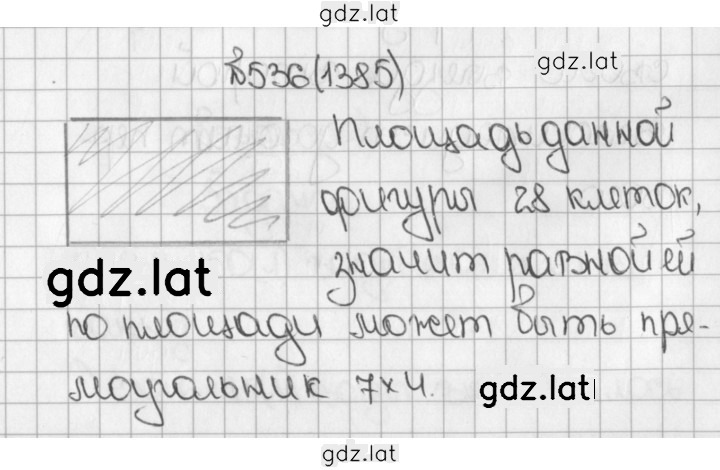 gdz.lat
№536(1385)
gdz.lat
Площадь данной
фигуры 28 клеток,
значит равной ей
gdz.lat
по площади может быть пря-
моугольник 7×4.
gdz.lat
gdz.lat